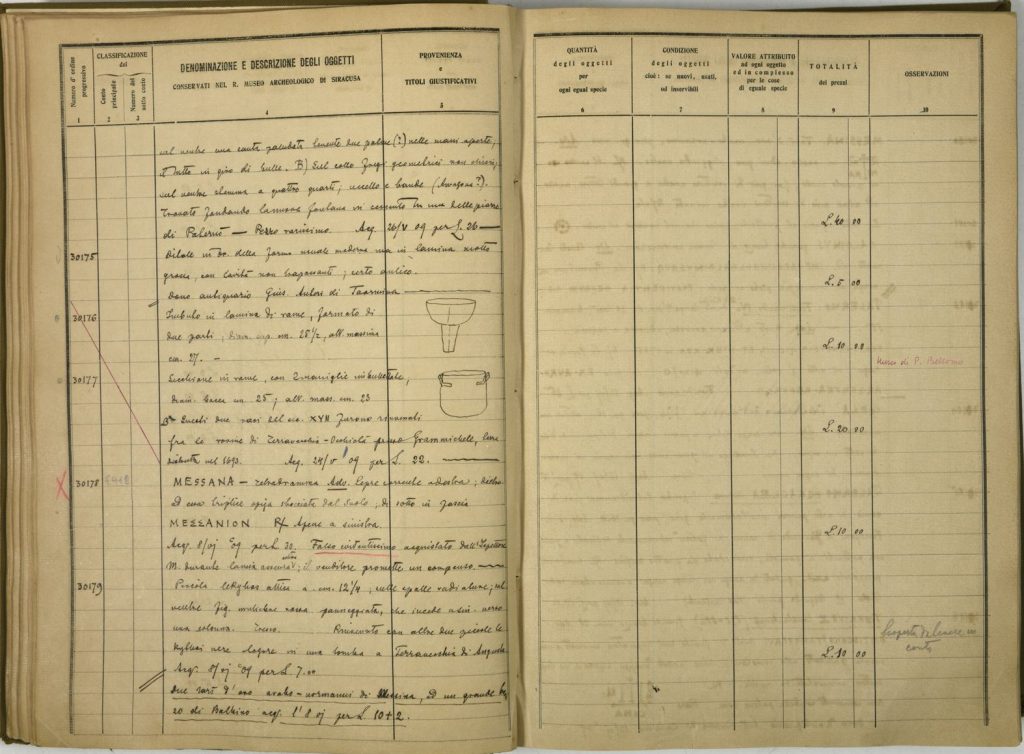 Numero d'ordine progressivo
CLASSIFICAZIONE
del
Conto principale
Numero del sotto conto
DENOMINAZIONE E DESCRIZIONE DEGLI OGGETTI
CONSERVATI NEL R. MUSEO ARCHEOLOGICO DI SIRACUSA
PROVENIENZA
e
TITOLI GIUSTIFICATIVI
1 2 3 4 5
nel ventre una paludati due palme (?) nelle mani aperte,
il tutto in giro di bulle. B) Sul collo fregi geometrici non
nel ventre a quattro quarti; uccello e bande (Aragona?).
trovato fondando fontana in cemento in una delle piazze
di Palermo — Pezzo rarissimo. Acq. 26/V 09 per L. 26 —
30175
Ditale in bo. della forma usuale moderna ma in lamina molto
grossa, con cavità non ; certo antico.
Dono antiquario Gius. di Taormina
30176
Imbuto in lamina di rame, formato di
due parti, diam. sup. cm. 25 1/2, alt. massima
cm. 27. —
30177
Secchione in rame, con 2 maniglie imbullettate,
diam. bocca cm 25; alt. mass. cm. 23
Questi due vasi del sec. XVII furono rinvenuti
fra le rovine di Terravecchia - Occhiolà presso Grammichele,
distrutta nel 1693. Acq. 24/V 09 per L. 22. —
30178
MESSANA — Tetradramma Adv. Lepre a destra; dietro
ad una spiga dal suolo, di sotto in fascia
MEΣΣANION R/ Apene a sinistra.
Acq. 8/vj 09 per L. 30. Falso evidentissimo acquistato dall'Ispettore
M. durante ; il venditore promette un compenso. —
30179
Piccola lekythos attica a. cm. 12 1/4, sulle spalle radiature; sul
ventre fig. muliebre rossa panneggiata, che incede a sin. verso
una colonna. Rinvenuto con altre due piccole le
kythoi nere logore in una tomba a Terravecchia di Augusta
Acq. 8/vj 09 per L 7.00
due tarì d'oro arabo-normanni di Messina, ed un grande
zo di Balbino acq. l'8 vj per L. 10 + 2.
QUANTITÀ
degli oggetti
per
ogni egual specie
CONDIZIONE
degli oggetti
cioè: se nuovi, usati,
od inservibili
VALORE ATTRIBUITO
ad ogni oggetto
ed in complesso
per le cose
di eguale specie
TOTALITÀ
dei prezzi
OSSERVAZIONI
6 7 8 9 10
L. 40 00
L. 5 00
L. 10 00
Museo di P. Bellomo
L. 20 00
L. 10 00
L. 10 00